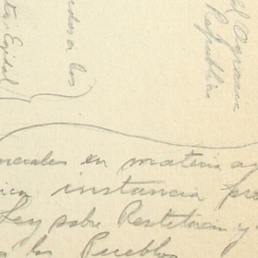 l Agraria
República
dos a los
ta Ejidal
enciales en materia ag
instancia pro
Ley sobre Restitución y
los Pueblos